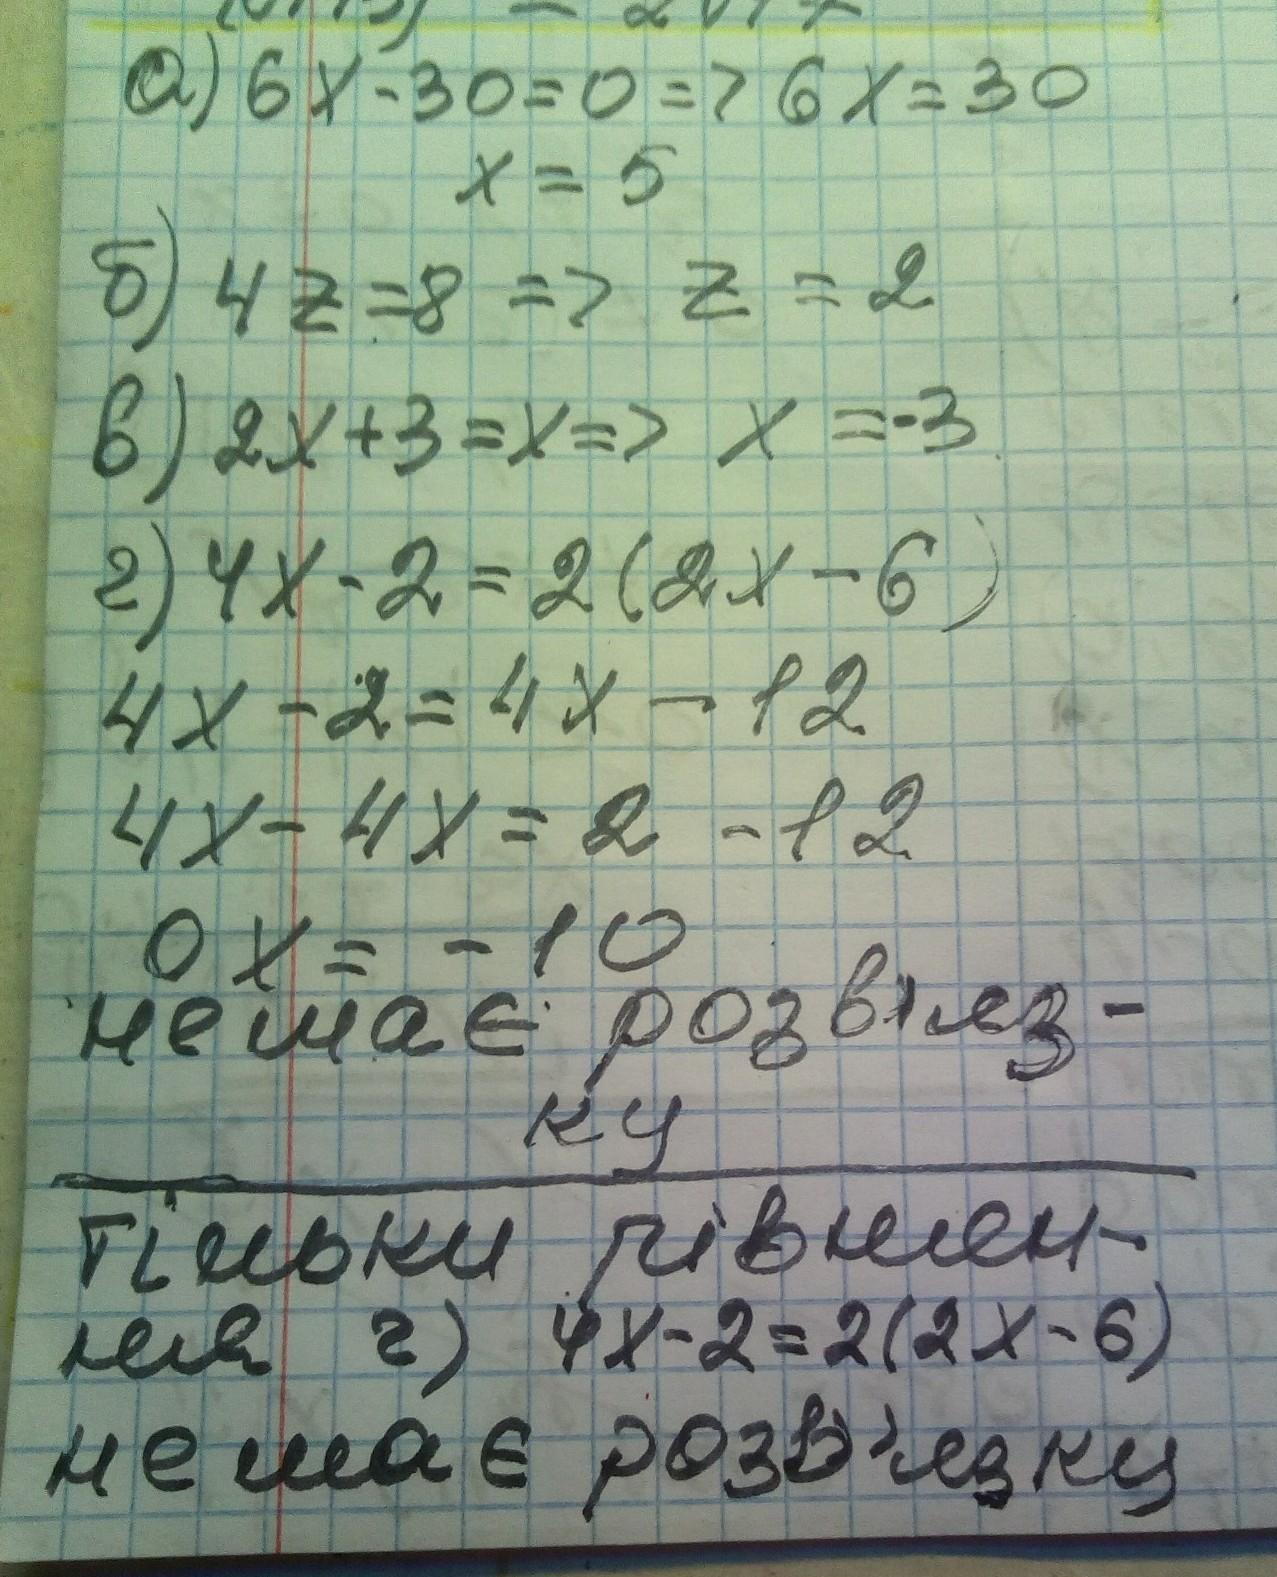 а) 6x-30=0=>6x=30
x = 5
б) 4z=8 => z = 2
в) 2x+3=x=> x =-3
г) 4x-2=2(2x-6)
4x-2=4x-12
4x-4x=2-12
0x=-10
немає розв'яз-
ку
тільки рівнян-
ня г) 4x-2=2(2x-6)
немає розв'язку